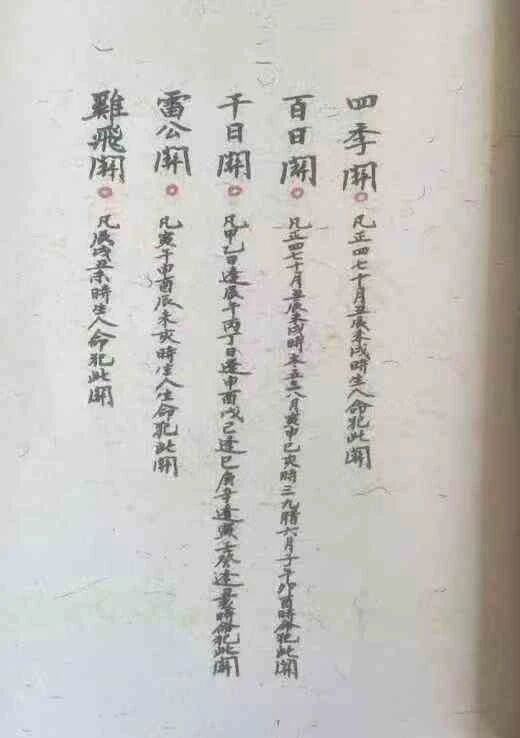 四季關。凡正四七十月丑辰未戌時生人命犯此關
百日關。凡正四七十月丑辰未戌時本五二八亥申巳亥時三九腊六月子午卯酉時命犯此關
千日關。凡甲乙日逢辰午丙丁日逢申酉戊己逢巳庚辛逢寅壬癸逢丑時命犯此關
雷公關。凡亥午申酉辰未亥時生人生命犯此關
雞飛關。凡辰戌丑未時生人命犯此關